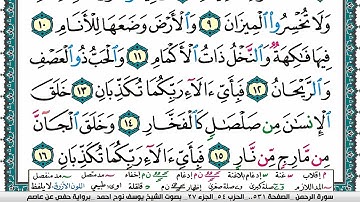 وَلَا تُخْسِرُوا۟ ٱلْمِيزَانَ ٩ وَٱلْأَرْضَ وَضَعَهَا لِلْأَنَامِ ١٠
فِيهَا فَـٰكِهَةٌ وَٱلنَّخْلُ ذَاتُ ٱلْأَكْمَامِ ١١ وَٱلْحَبُّ ذُو ٱلْعَصْفِ
وَٱلرَّيْحَانُ ١٢ فَبِأَىِّ ءَالَآءِ رَبِّكُمَا تُكَذِّبَانِ ١٣ خَلَقَ
ٱلْإِنسَـٰنَ مِن صَلْصَـٰلٍ كَٱلْفَخَّارِ ١٤ وَخَلَقَ ٱلْجَآنَّ
مِن مَّارِجٍ مِّن نَّارٍ ١٥ فَبِأَىِّ ءَالَآءِ رَبِّكُمَا تُكَذِّبَانِ ١٦
سورة الرحمن - الصفحة ٥٣١ - الحزب ٥٤ - الجزء ٢٧ - بصوت الشيخ يوسف نوح احمد - برواية حفص عن عاصم